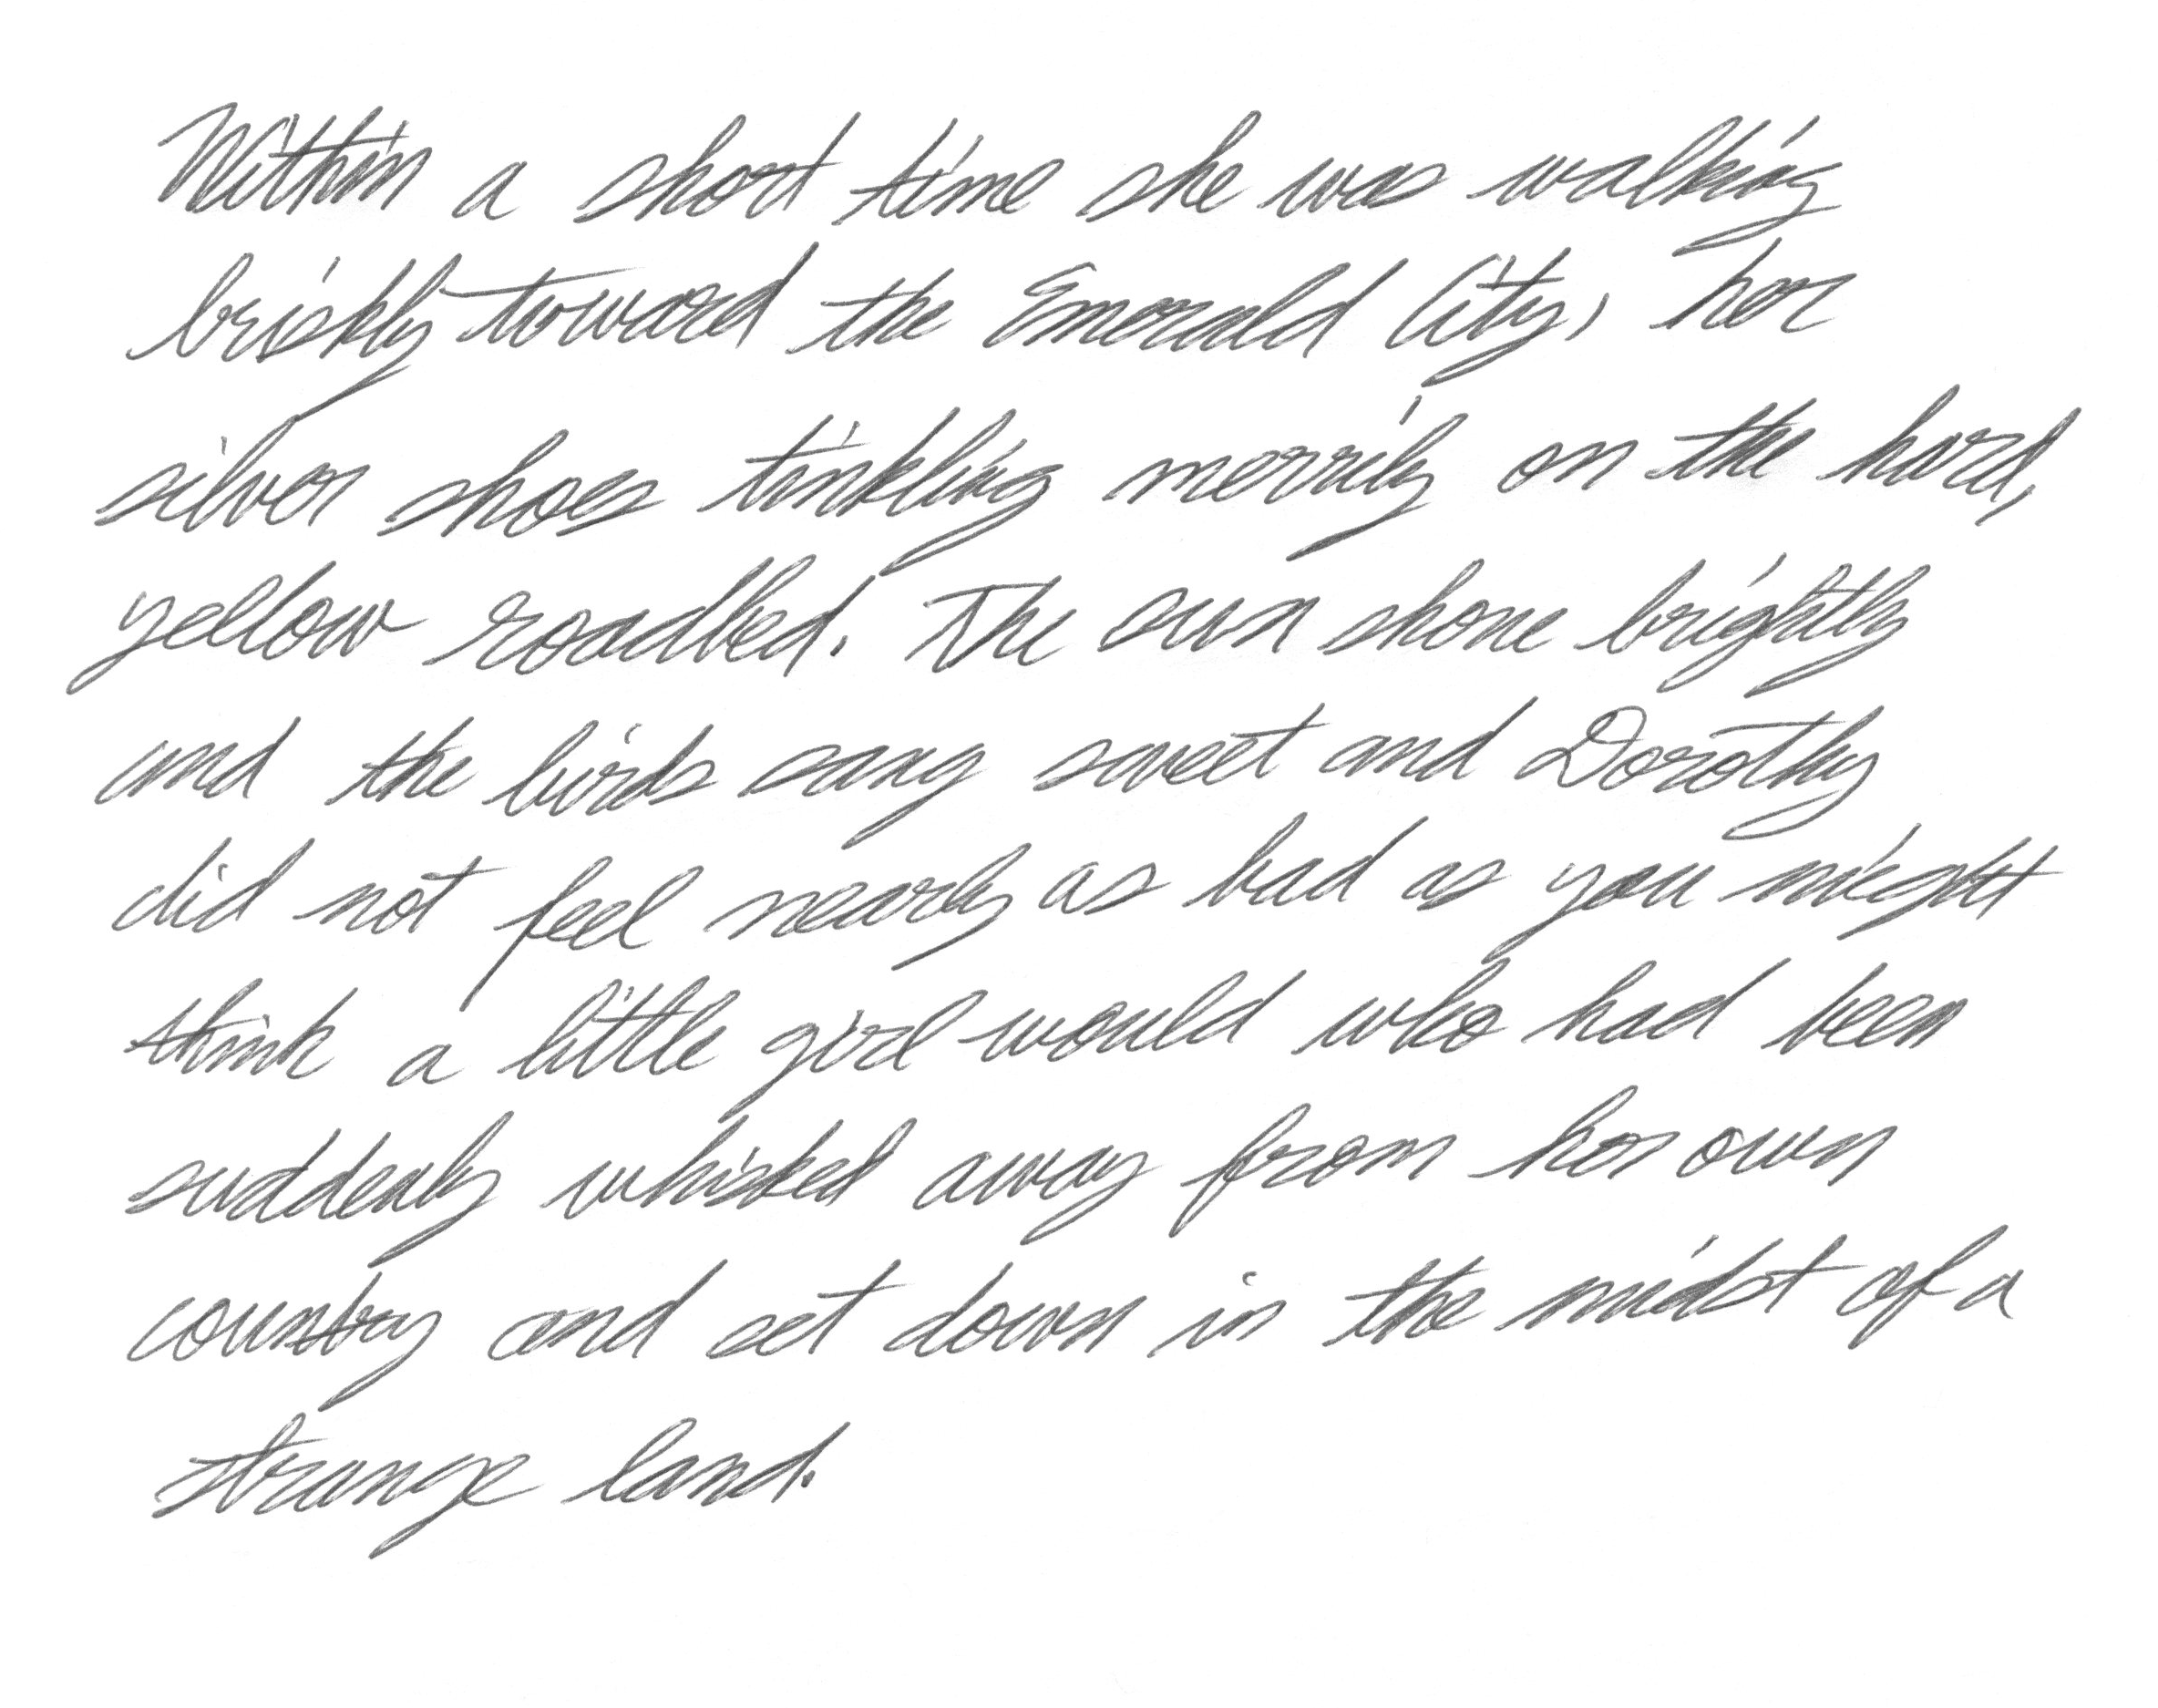 Within a short time she was walking
briskly toward the Emerald City, her
silver shoes tinkling merrily on the hard,
yellow roadbed. The sun shone brightly
and the birds sang sweet and Dorothy
did not feel nearly as bad as you might
think a little girl would who had been
suddenly whisked away from her own
country and set down in the midst of a
strange land.